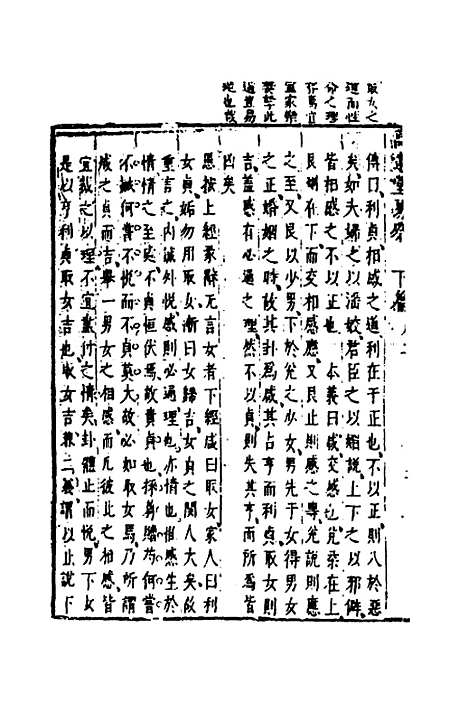 取女之
道而性
命之理
存焉宜
室家樂
妻孥此
道豈易
哉
下經
傳曰利貞相感之道利在于正也不以正則入於惡
矣如夫婦之以淫姣君臣之以媚說上下之以邪僻
皆相感之不以正也 本義曰咸交感也兌柔在上
艮剛在下而交相感應又艮止則感之專兌說則應
之至又艮以少男下於兌之少女男先于女得男女
之正婚姻之時故其卦爲咸其占亨而利貞取女則
吉蓋感有必通之理然不以貞則失其亨而所爲皆
凶矣
愚按上經彖辭无言女者下經咸曰取女家人曰利
女貞姤勿用取女漸曰女歸吉女貞之關人大矣故
重言之内誠外悅感則必通理也亦情也惟感生於
情情之至矣不貞恒伏焉故貴貞也採芍贈芍何嘗
不誠何嘗不悅而不貞莫大故必如取女焉乃所謂
咸之貞而吉舉一男女之相感而凡彼此之相感皆
宜裁之以理不宜任行之情矣卦體止而悅男下女
是以亨利貞取女吉也取女吉兼二義謂以止說下